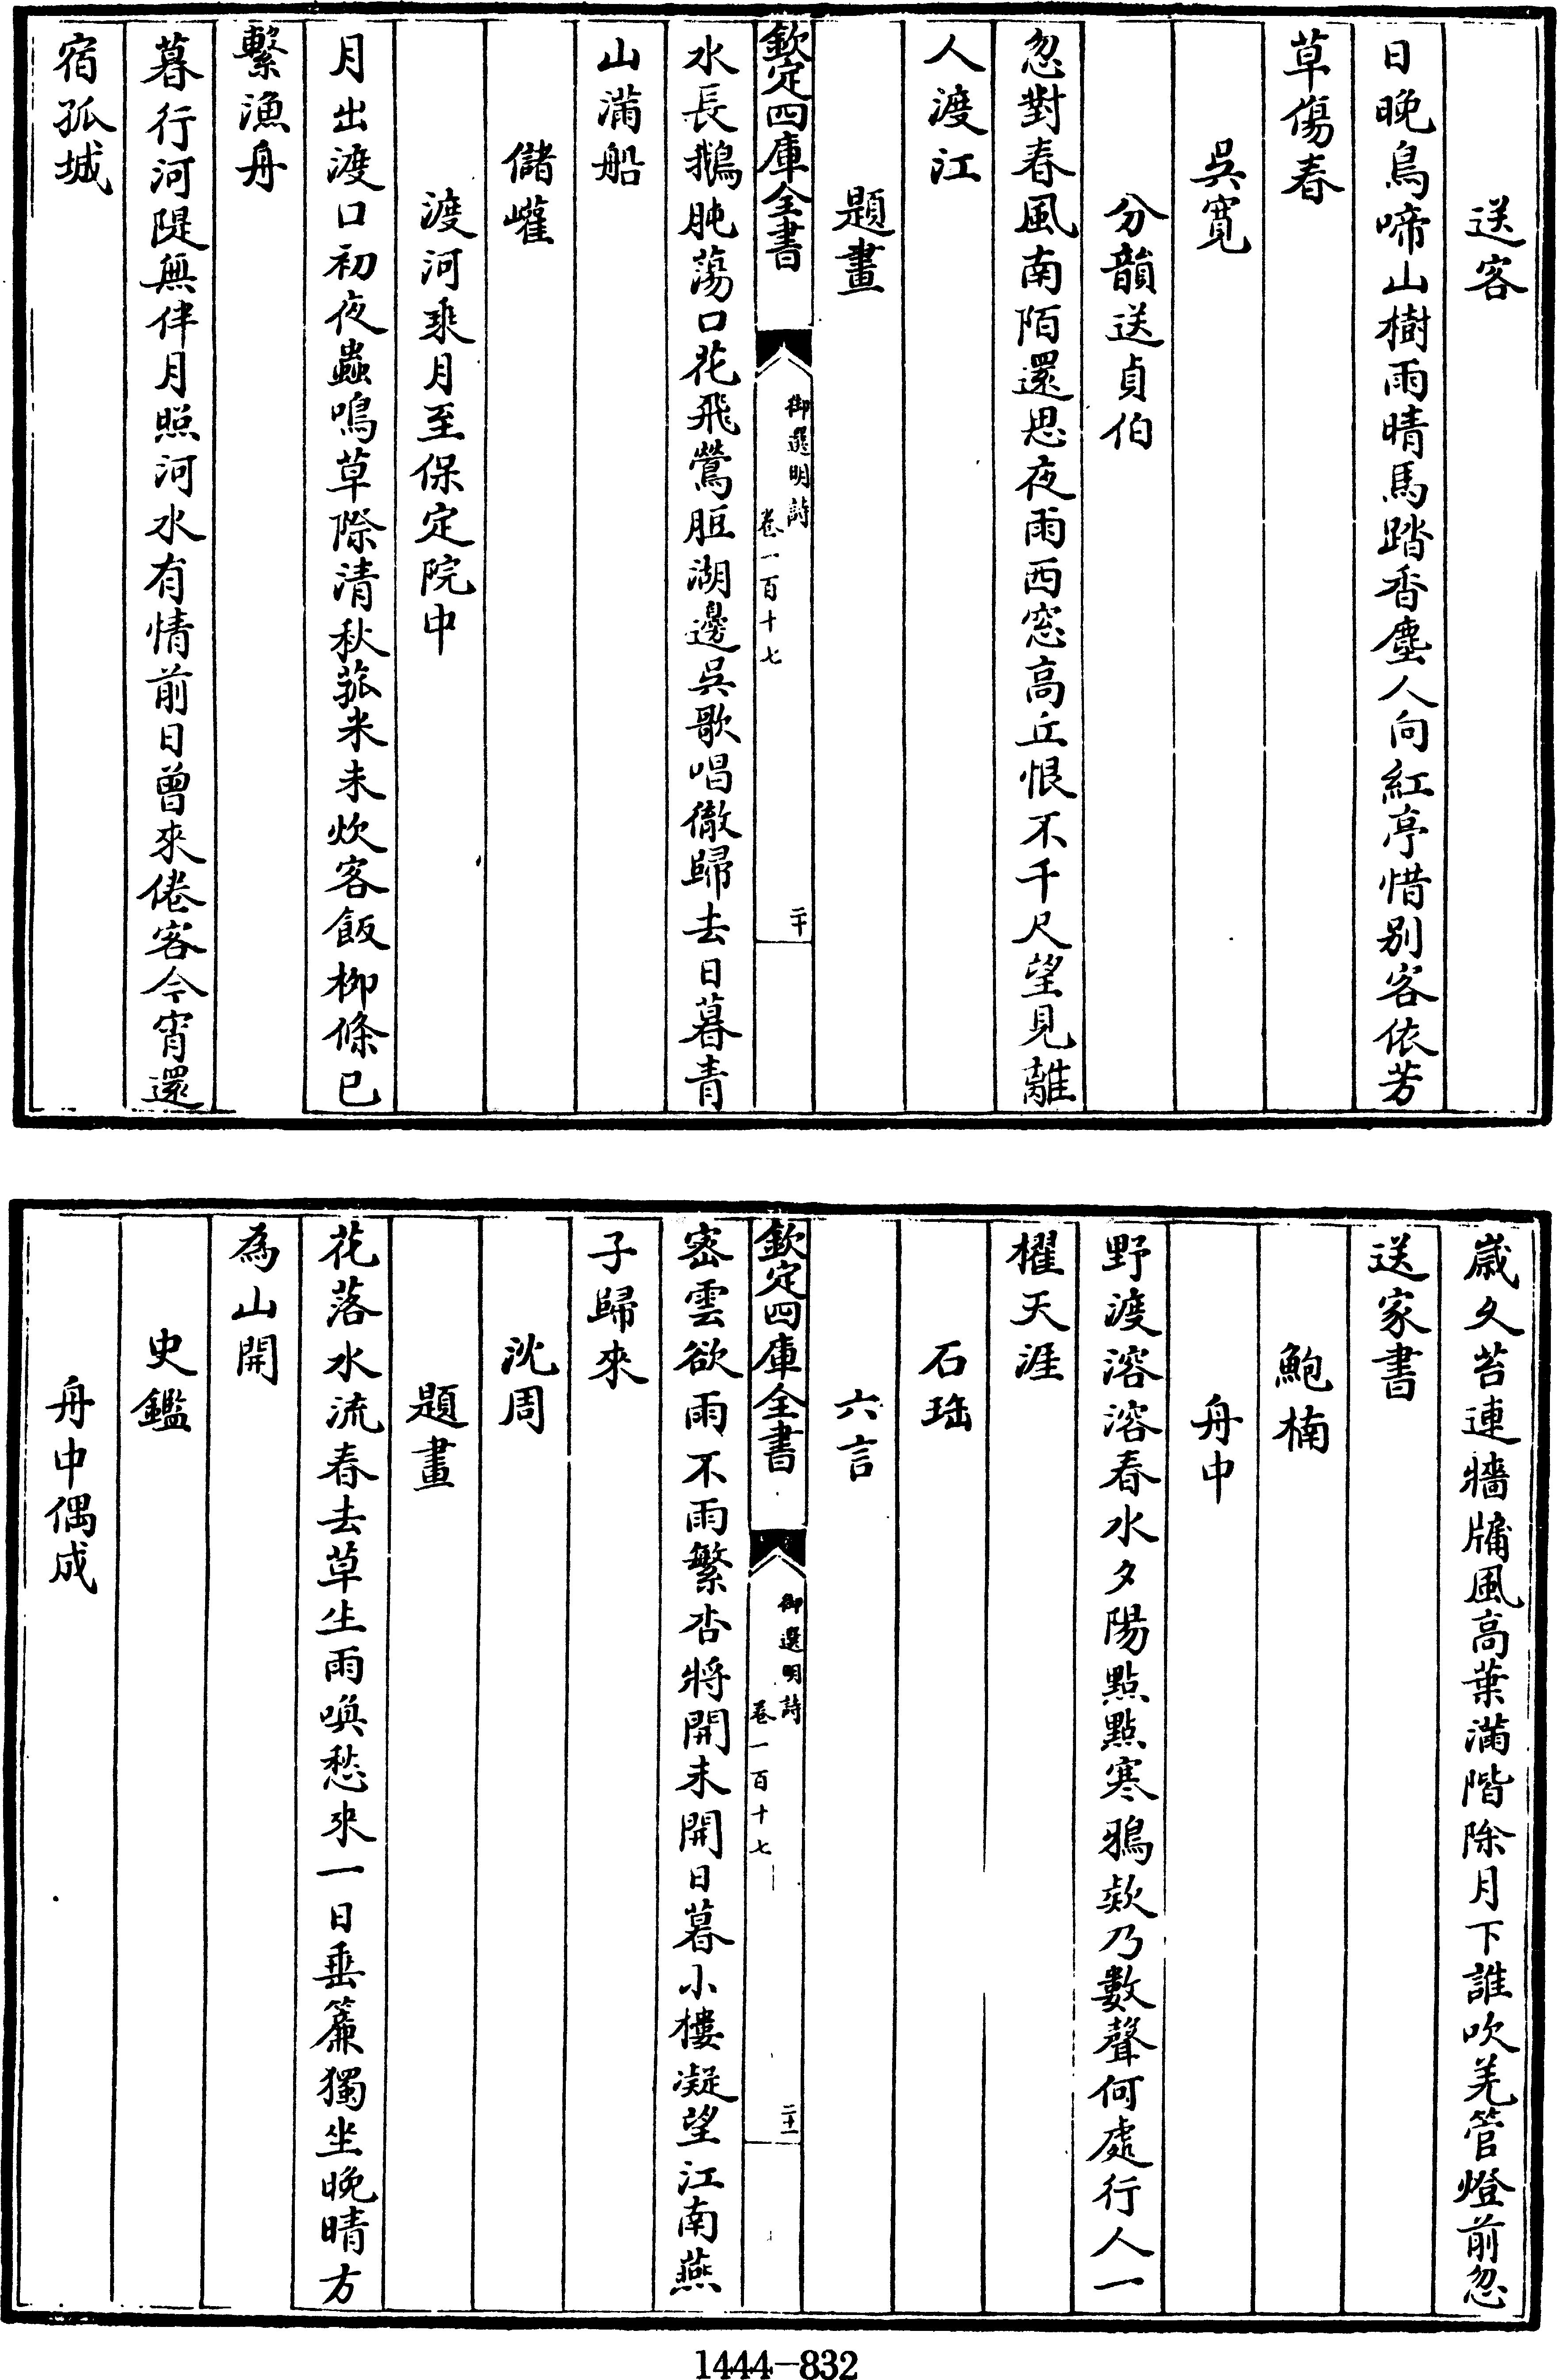 送客
日晚鳥啼山樹雨晴馬踏香塵人向紅亭惜別客依芳
草傷春
吳寬
分韻送貞伯
忽對春風南陌還思夜雨西窓高丘恨不千尺望見離
人渡江
題畫
欽定四庫全書
御選明詩
卷一百十七
二十
水長鵝肫蕩口花飛鶯脰湖邊吳歌唱徹歸去日暮青
山滿船
儲巏
渡河乘月至保定院中
月出渡口初夜蟲鳴草際清秋菰米未炊客飯柳條已
繫漁舟
暮行河隄無伴月照河水有情前日曾來倦客今宵還
宿孤城
歲久苔連牆牗風高葉滿階除月下誰吹羌管燈前忽
送家書
鮑楠
舟中
野渡溶溶春水夕陽點點寒鴉欸乃數聲何處行人一
櫂天涯
石珤
六言
欽定四庫全書
御選明詩
卷一百十七
二十一
密雲欲雨不雨繁杏將開未開日暮小樓凝望江南燕
子歸來
沈周
題畫
花落水流春去草生雨喚愁來一日垂簾獨坐晚晴方
為山開
史鑑
舟中偶成
1444-832